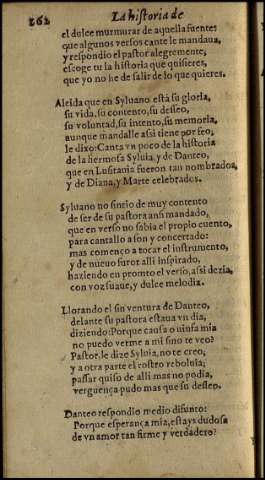 262 La historia de
el dulce murmurar de aquella fuentes
que algunos versos cante le mandaua,
y respondio el pastor alegremente,
escoge tu la historia que quisieres,
que yo no he de salir de lo que quieres.
Aleida que en Syluano está su gloria,
su vida, su contento, su desseo,
su voluntad, su intento, su memoria,
aunque mandalle assi tiene por feo;
le dixo: Canta vn poco de la historia
de la hermosa Syluia, y de Danteo,
que en Lusitania fueron tan nombrados,
y de Diana, y Marte celebrados.
Syluano no sintio de muy contento
de ser de su pastora ansi mandado,
que en verso no sabia el propio cuento,
para cantallo a son y concertado:
mas començo a tocar el instrumento,
y de nueuo furor alli inspirado,
haziendo en promto el verso, assi dezia,
con voz suaue, y dulce melodia.
Llorando el sin ventura de Danteo,
delante su pastora estaua vn dia,
diziendo: Porque causa o ninfa mia
no puedo verme a mi sino te veo?
Pastor, le dize Syluia, no te creo;
y a otra parte el rostro reboluia;
passar quiso de alli mas no podia,
verguença pudo mas que su desseo.
Danteo respondio medio difunto:
Porque esperança mia, estays dudosa
de vn amor tan firme y verdadero?